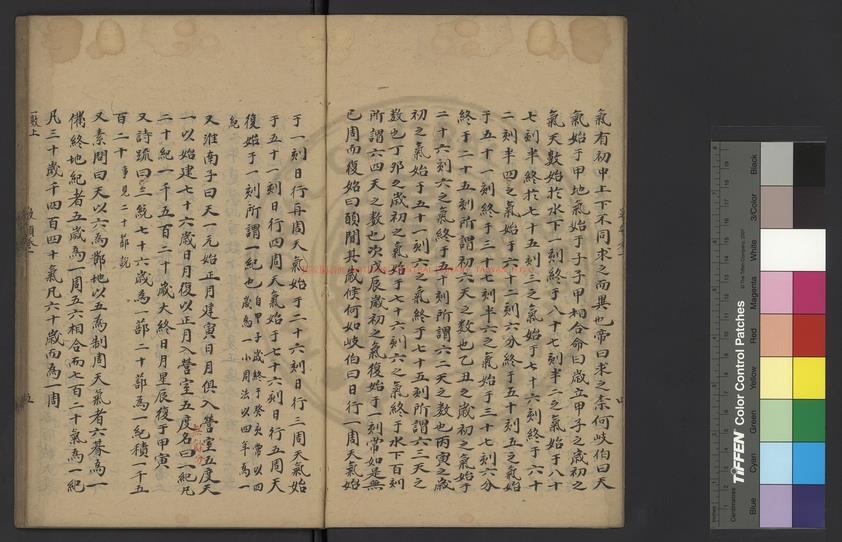 氣有初中上下不同求之而異也帝曰求之柰何岐伯曰天
氣始于甲地氣始于子子甲相合命曰歲立甲子之歲初之
氣天數始於水下一刻終于八十七刻半二之氣始于八十
七刻半終於七十五刻三之氣始于七十六刻終于六十
二刻半四之氣始于六十二刻六分終于五十刻五之氣始
于五十一刻終于三十七刻半六之氣始于三十七刻六分
終于二十五刻所謂初六天之數也乙丑之歲初之氣始于
二十六刻六之氣終于五十刻所謂六二天之數也丙寅之歲
初之氣始于五十一刻六之氣終于七十五刻所謂六三天之
數也丁卯之歲初之氣始于七十六刻六之氣終于水下百刻
所謂六四天之數也次戊辰歲初之氣復始于一刻常如是無
已周而復始曰願聞其歲候何如岐伯曰日行一周天氣始
于一刻日行再周天氣始于二十六刻日行三周天氣始
于五十一刻日行四周天氣始于七十六刻日行五周天
復始于一刻所謂一紀也自甲子歲終于癸亥常以四
歲為一小周法以四年為一
紀
又淮南子曰天一元始正月建寅日月俱入營室五度天
一以始建七十六歲日月復以正月入營室五度名曰一紀凡
二十紀一千五百二十歲大終日月星辰復于甲寅
又詩疏曰三統七十六歲為一蔀二十蔀為一紀積一千五
百二十事見二十蔀說
又素問曰天以六為節地以五為制周天氣者六朞為一
備終地紀者五歲為一周五六相合而七百二十氣為一紀
凡三十歲千四百四十氣凡六十歲而為一周
一數上
五
TIFFEN Color Control Patches
© The Tiffen Company, 2007
Inches
Centimetres
Blue
Cyan
Green
Yellow
Red
Magenta
White
3/Color
Black